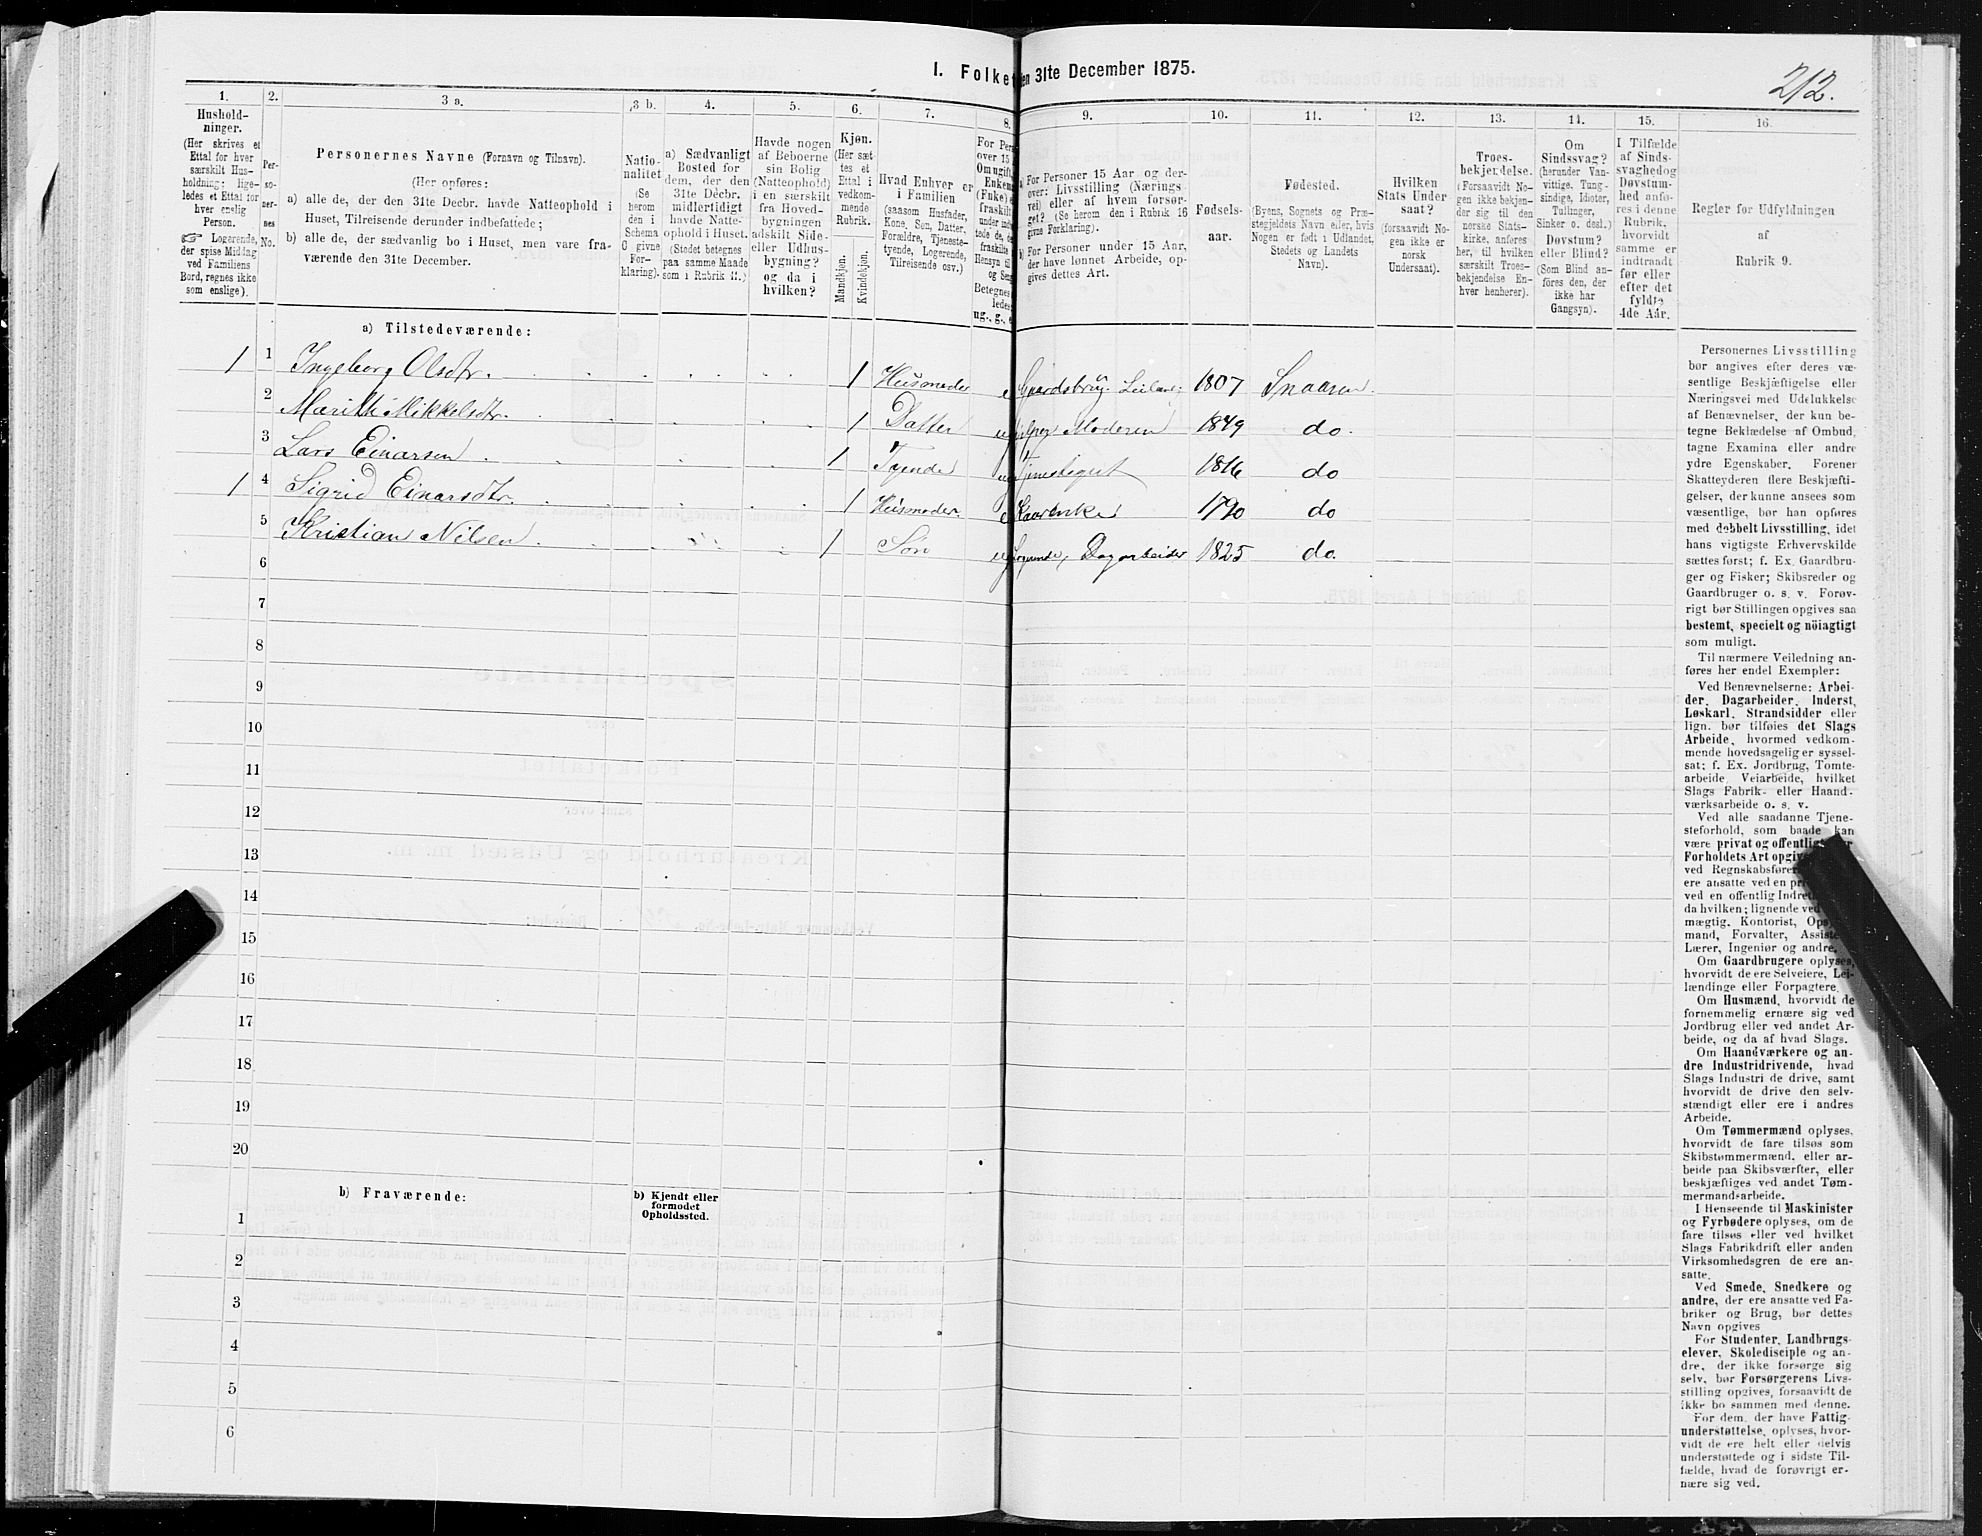 I. Folket
en 31te December 1875.
212.
1.
Hushold-
ninger.
(Her skrives et
Ettal for hver
særskilt Hus-
holdning; lige-
ledes et Ettal for
hver enslig
Person.
Logerende,
der spise Middag
ved Familiens
Bord, regnes ikke
som enslige).
2.
Per-
so-
ner-
nes
No.
3 a.
Personernes Navne (Fornavn og Tilnavn).
(Her opføres:
a) alle de, der den 31te Decbr. havde Natteophold i
Huset, Tilreisende derunder indbefattede;
b) alle de, der sædvanlig bo i Huset, men vare fra-
værende den 31te December.
3 b.
Natio-
nalitet
(Se
herom
den i
Schema
G givne
For-
klaring).
4.
a) Sædvanligt
Bosted for
dem, der den
31te Decbr.
midlertidigt
havde Natte-
ophold i Huset.
(Stedet betegnes
paa samme Maade
som i Rubrik 11.)
5.
Havde nogen
af Beboerne
sin Bolig
(Natteophold)
i en særskilt
fra Hoved-
bygningen
adskilt Side-
eller Udhus-
bygning?
og da i
hvilken?
6.
Kjøn.
(Her sæt-
tes et
Ettal i
vedkom-
mende
Rubrik.
Mandkjøn.
Kvindekjøn.
7.
Hvad Enhver er
i Familien
(saasom Husfader,
Kone, Søn, Datter,
Forældre, Tjeneste-
tyende, Logerende,
Tilreisende osv.)
8.
For Pers
over 15
Om ugift,
Enkem
(Fnke)
fraskilt
9.
a) For Personer 15 Aar og der-
over: Livsstilling (Nærings-
vei) eller af hvem forsør-
get? (Se herom de i Rubrik 16
givne Forklaring).
b) For Personer under 15 Aar,
der have lønnet Arbeide, op-
gives dettes Art.
10.
Fødsels-
aar.
11.
Fødested.
(Byens, Sognets og Præ-
stegjeldets Navn eller, hvis
Nogen er født i Udlandet,
Stedets og Landets
Navn).
12.
Hvilken
Stats Under
saat?
(forsaavidt No-
gen ikke er
norsk
Undersaat).
13.
Troes-
bekjendelse.
(Forsaavidt No-
gen ikke bekjen-
der sig til den
norske Stats-
kirke, anføres
her, til hvilken
særskilt Troes-
bekjendelse En-
hver henhører).
14.
Om
Sindssvag?
(herunder Van-
vittige, Tung-
sindige, Idioter,
Tullinger,
Sinker o. desl.)
Døvstum?
eller Blind?
(Som Blind an-
føres den, der
ikke har
Gangsyn).
15.
I Tilfælde
af Sinds-
svaghed og
Døvstum-
hed anfø-
res i denne
Rubrik,
hvorvidt
samme er
indtraadt
før eller
efter det
fyldte
4de Aar.
16.
Regler for Udfyldningen
af
Rubrik 9.
a) Tilstedeværende:
1 1 Ingeborg Olsdtr. 1 Husmoder e Gaardsbrug. 1807 Snaasen.
2 Marith Mikkelsdtr. 1 Datter ug hjelper Moderen 1849 do.
3 Lars Einarsen 1 Tyende ug Tjenestegut do
1 4 Sigrid Einarsdtr. 1 Husmoder. e 1790 do
5 Kristian Nilsen 1 Søn ug Dagarbeider 1825 do.
6
7
8
9
10
11
12
13
14
15
16
17
18
19
20
b) Fraværende:
b) Kjendt eller
formodet
Opholdssted.
1
2
3
4
5
6
Personernes Livsstilling
bør angives efter deres væ-
sentlige Beskjæftigelse eller
Næringsvei med Udelukkelse
af Benævnelser, der kun be-
tegne Beklædelse af Ombud,
tagne Examina eller andre
ydre Egenskaber. Forener
Skatteyderen flere Beskjæfti-
gelser, der kunne ansees som
væsentlige, bør han opføres
med dobbelt Livsstilling, idet
hans vigtigste Erhvervskilde
sættes først; f. Ex. Gaardbru-
ger og Fisker; Skibsreder og
Gaardbruger o. s. v. Forøv-
rigt bør Stillingen opgives saa
bestemt, specielt og nöiagtigt
som muligt.
Til nærmere Veiledning an-
føres her endel Exempler:
Ved Benævnelserne: Arbei-
der, Dagarbeider, Inderst,
Løskarl, Strandsidder eller
lign. bør tilføies det Slags
Arbeide, hvormed vedkom-
mende hovedsagelig er syssel-
sat; f. Ex. Jordbrug, Tomte-
arbeide, Veiarbeide, hvilket
Slags Fabrik- eller Haand-
værksarbeide o. s. v.
Ved alle saadanne Tjene-
steforhold, som baade kan
være privat og offentlig
Forholdets Art opgiv
ved Regnskabsfører
ere ansatte ved en pr
ved en offentlig Indret
da hvilken; lignende ved
mægtig, Kontorist, Ops
mand, Forvalter, Assiste
Lærer, Ingeniør og andre.
Om Gaardbrugere oplyses,
hvorvidt de ere Selveiere, Lei-
lændinge eller Forpagtere.
Om Husmænd, hvorvidt de
fornemmelig ernære sig ved
Jordbrug eller ved andet Ar-
beide, og da af hvad Slags.
Om Haandværkere og an-
dre Industridrivende, hvad
Slags Industri de drive, samt
hvorvidt de drive den selv-
stændigt eller ere i andres
Arbeide.
Om Tømmermænd oplyses,
hvorvidt de fare tilsøs som
Skibstømmermænd, eller ar-
beide paa Skibsværfter, eller
beskjæftiges ved andet Tøm-
mermandsarbeide.
I Henseende til Maskinister
og Fyrbødere oplyses, om de
fare tilsøs eller ved hvilket
Slags Fabrikdrift eller anden
Virksomhedsgren de ere an-
satte.
Ved Smede, Snedkere og
andre, der ere ansatte ved Fa-
briker og Brug, bør dettes
Navn opgives
For Studenter, Landbrugs-
elever, Skoledisciple og an-
dre, der ikke forsørge sig
selv, bør Forsørgerens Livs-
stilling opgives, forsaavidt de
ikke bo sammen med denne.
For dem, der have Fattig-
understøttelse, oplyses, hvor-
vidt de ere helt eller delvis
understøttede og i sidste Til-
fælde, hvad de forøvrigt er-
nære sig ved.